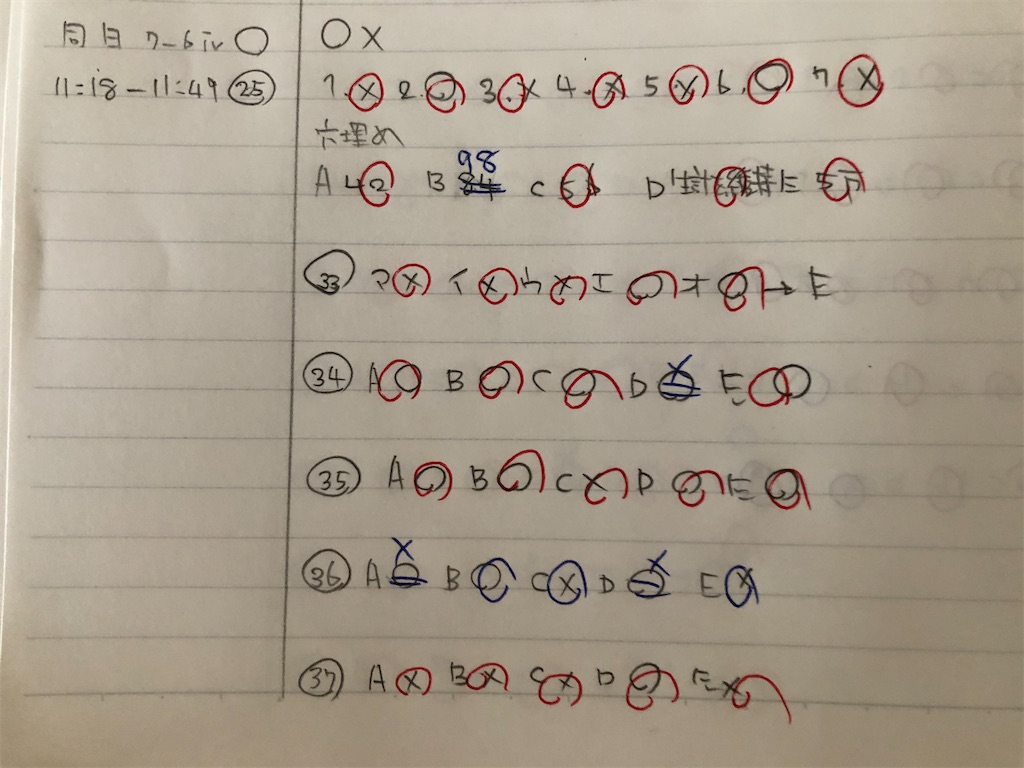 同日 7-6 iv ○
11:18 - 11:49 ㉕
○ ×
1. × 2. ○ 3. × 4. × 5 × 6. ○ 7 ×
穴埋め
98
A 42 B 84 C D E
㉝ ア × イ × ウ × エ ○ オ ○ → E
×
㉞ A ○ B ○ C ○ D ○ E ○
㉟ A ○ B ○ C × D ○ E ○
× ×
㊱ A ○ B ○ C × D ○ E ×
㊲ A × B × C × D ○ E ×